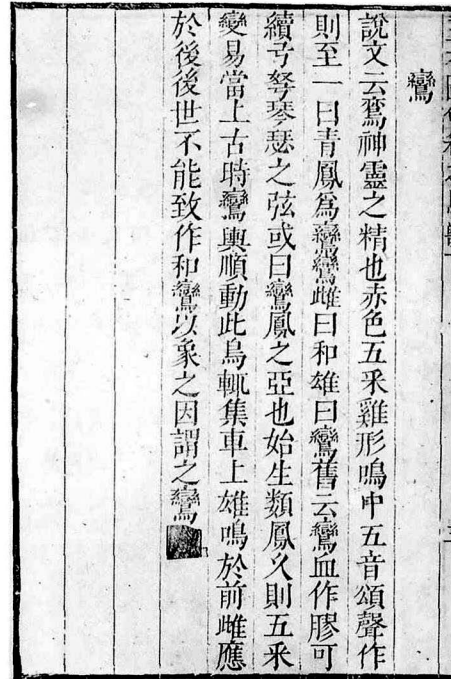 鸞
說文云鵉神靈之精也赤色五釆雞形鳴中五音頌聲作
則至一曰青鳳為鸞鸞雌曰和雄曰鸞舊云鸞血作膠可
續弓弩琴瑟之弦或曰鸞鳳之亞也始生類鳳久則五釆
變易當上古時鸞輿順動此鳥輒集車上雄鳴於前雌應
於後後世不能致作和鸞以象之因謂之鸞